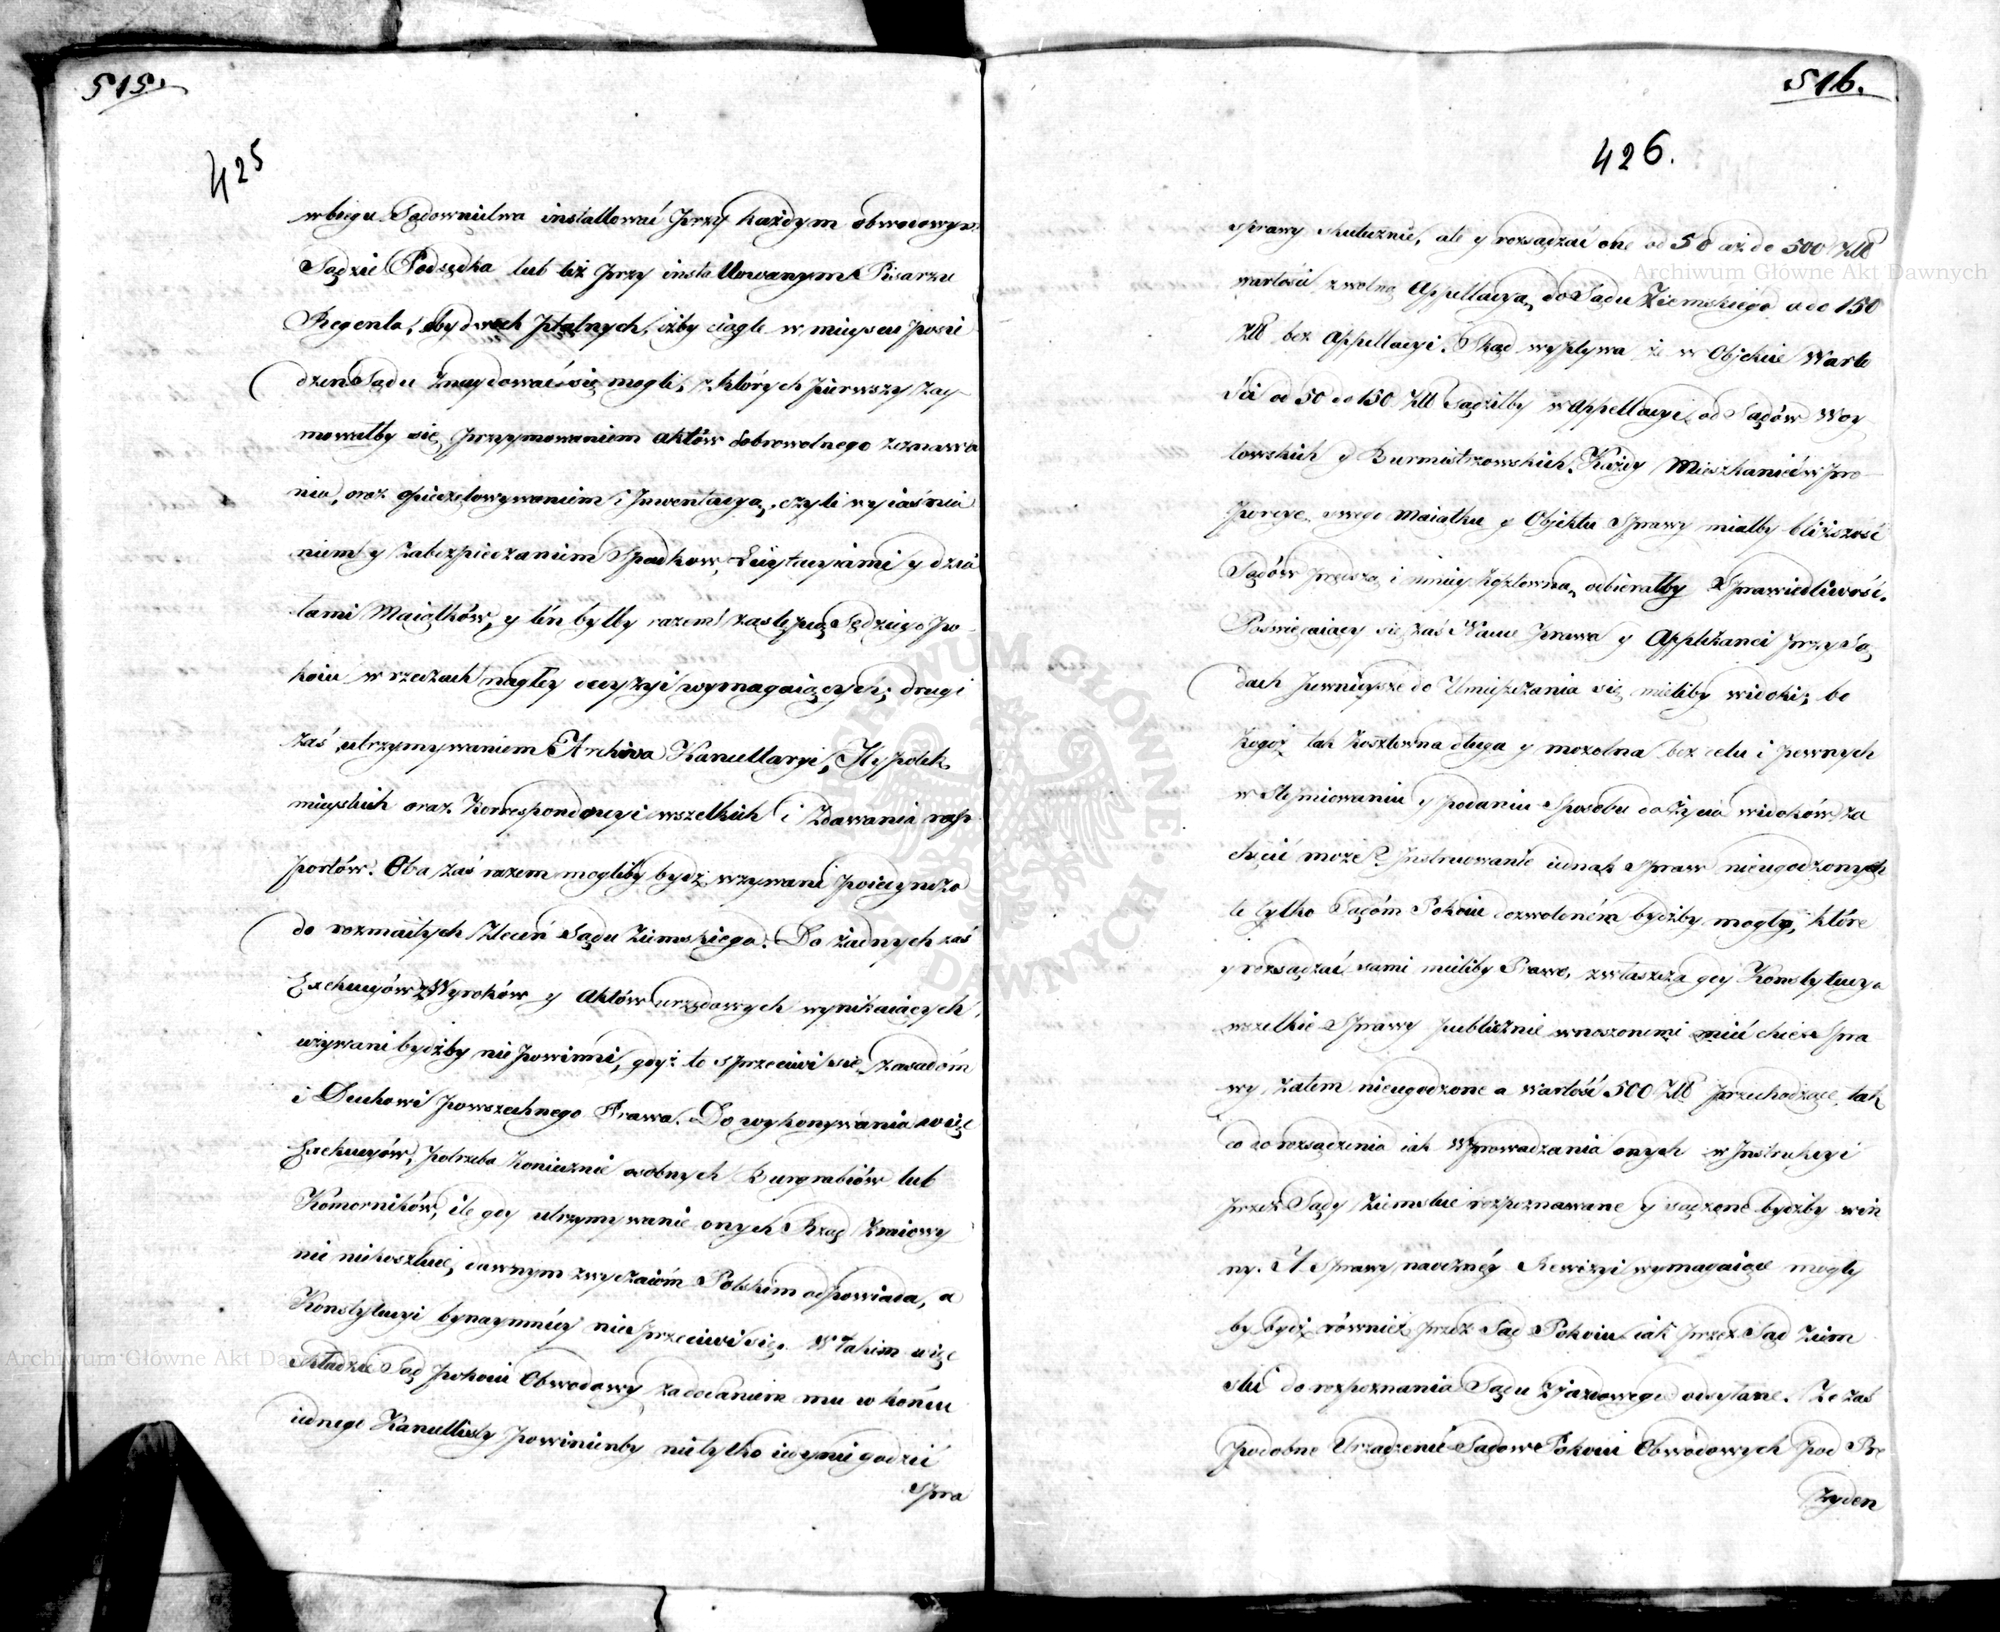 515.
425
w biegu Sądownictwa installować przy każdym obwodowym
Sądzie Podsędka lub też przy installowanym Pisarzu
Regenta, obydwóch płatnych, iżby ciągle w mieyscu posie
dzeń Sądu znaydować się mogli, z których pierwszy zay
mowałby się przyymowaniem aktów dobrowolnego zeznawa
nia, oraz opieczętowywaniem i Inwentacyą, czyli wyiaśnia
niem y zabezpieczaniem Spadkow, Licytacyiami y dzia
łami Maiątków, y tén byłby razem zastępcą Sędziego Po
koiu w rzeczach nagłey decyzyi wymagaiących; drugi
zaś utrzymywaniem Archiva Kancellaryi, Hypotek
mieyskich oraz Korrespondencyi wszelkich i Zdawania rap
portów. Oba zaś razem mogliby bydź wzywani poiedynczo
do rozmaitych Zleceń Sądu Ziemskiego. Do żadnych zaś
Exekucyów z Wyroków y Aktów urzędowych wynikaiących
używani bydźby nie powinni, gdyż to sprzeciwi się zasadóm
i Duchowi powszechnego Prawa. Do wykonywania więc
Exekucyów, potrzeba koniecznie osobnych Burgrabiów lub
Komorników, ile gdy utrzymywanie onych Rząd Kraiowy
nic niekosztuie, dawnym zwyczaióm Polskim odpowiada, a
Konstytucyi bynaymniéy nie przeciwi się. W takim więc
składzie Sąd pokoiu Obwodowy za dodaniem mu w końcu
iednego Kancellisty powinienby nietylko iedynie godzić
Spra
516.
426.
sprawy skutecznie, ale y rozsądzać one od 50 aż do 500 Złł
wartości z wolną Appellacyą do Sądu Ziemskiego a do 150
Złł bez Appellacyi. Skąd wypływa że w Objekcie Warto
ści od 50 do 150 Złł sądziłby w Appellacyi od Sądów Woy
towskich y Burmistrzowskich. Każdy Mieszkaniec w pro
porcye swego Maiątku y Objektu Sprawy miałby bliższość
Sądów prędszą i mniey kosztowną odbierałby Sprawiedliwość.
Poświęcaiący się zaś Nauce Prawa y Applikanci przy Są
dach pewnieysze do Umieszczania się mieliby widoki; bo
kogoż tak kosztowna długa y mozolna bez celu i pewnych
w Uymiowaniu y podaniu Sposobu do życia widoków za
chęcić może? Instruowanie iednak Spraw nieugodzonych
te tylko Sądóm Pokoiu dozwolonémi bydźby mogły, które
y rozsądzać sami mieliby Prawo, zwłaszcza gdy Konstytucya
wszelkie Sprawy publicznie wnoszonemi mieć chce. Spra
wy zatem nieugodzone a wartość 500 Złł przechodzące, tak
co do rozsądzenia iak Wprowadzania onych w Instrukcyi
przez Sądy Ziemskie rozpoznawane y sądzone bydźby win
ny. A Sprawy naocznéy Rewizyi wymagaiące mogły
by bydź również przez Sąd Pokoiu iak przez Sąd Ziem
ski do rozpoznania Sądu Zjazdowego odsyłane. Że zaś
podobne Urządzenie Sądów Pokoiu Obwodowych pod Pre
zyden
Archiwum Główne Akt Dawnych
Archiwum Główne Akt Dawnych
ARCHIWUM GŁÓWNE AKT DAWNYCH